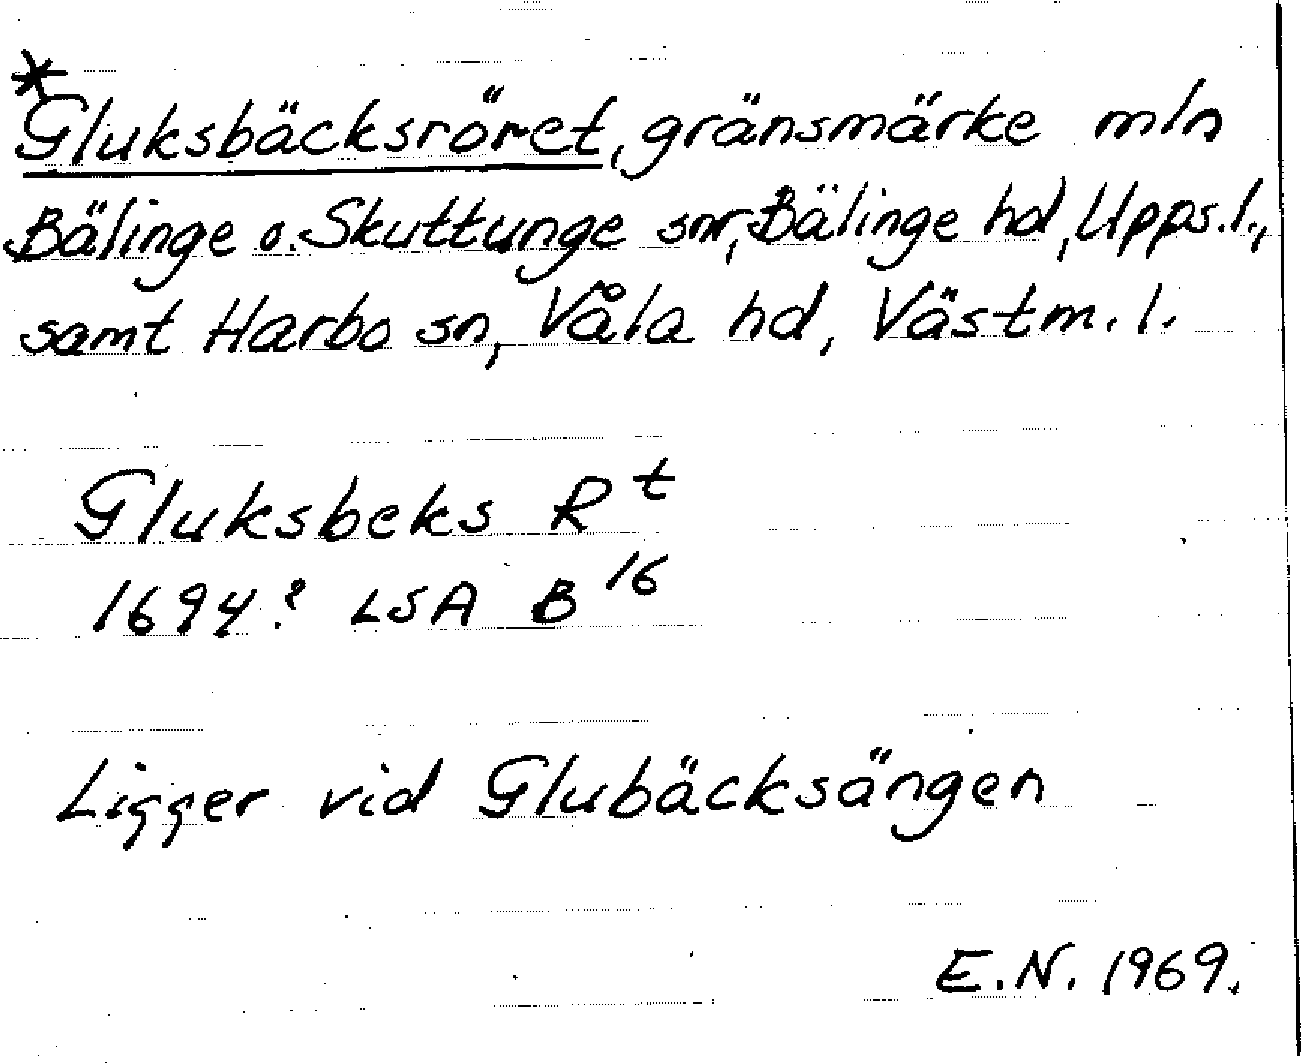 *Gluksbäcksröret, gränsmärke mln
Bälinge o. Skuttunge snr, Bälinge hd, Upps.l.,
samt Harbo sn, Våla hd, Västm.l.
Gluksbeks R^t
1694? LSA B^16
Ligger vid Glubäcksängen
E.N. 1969.